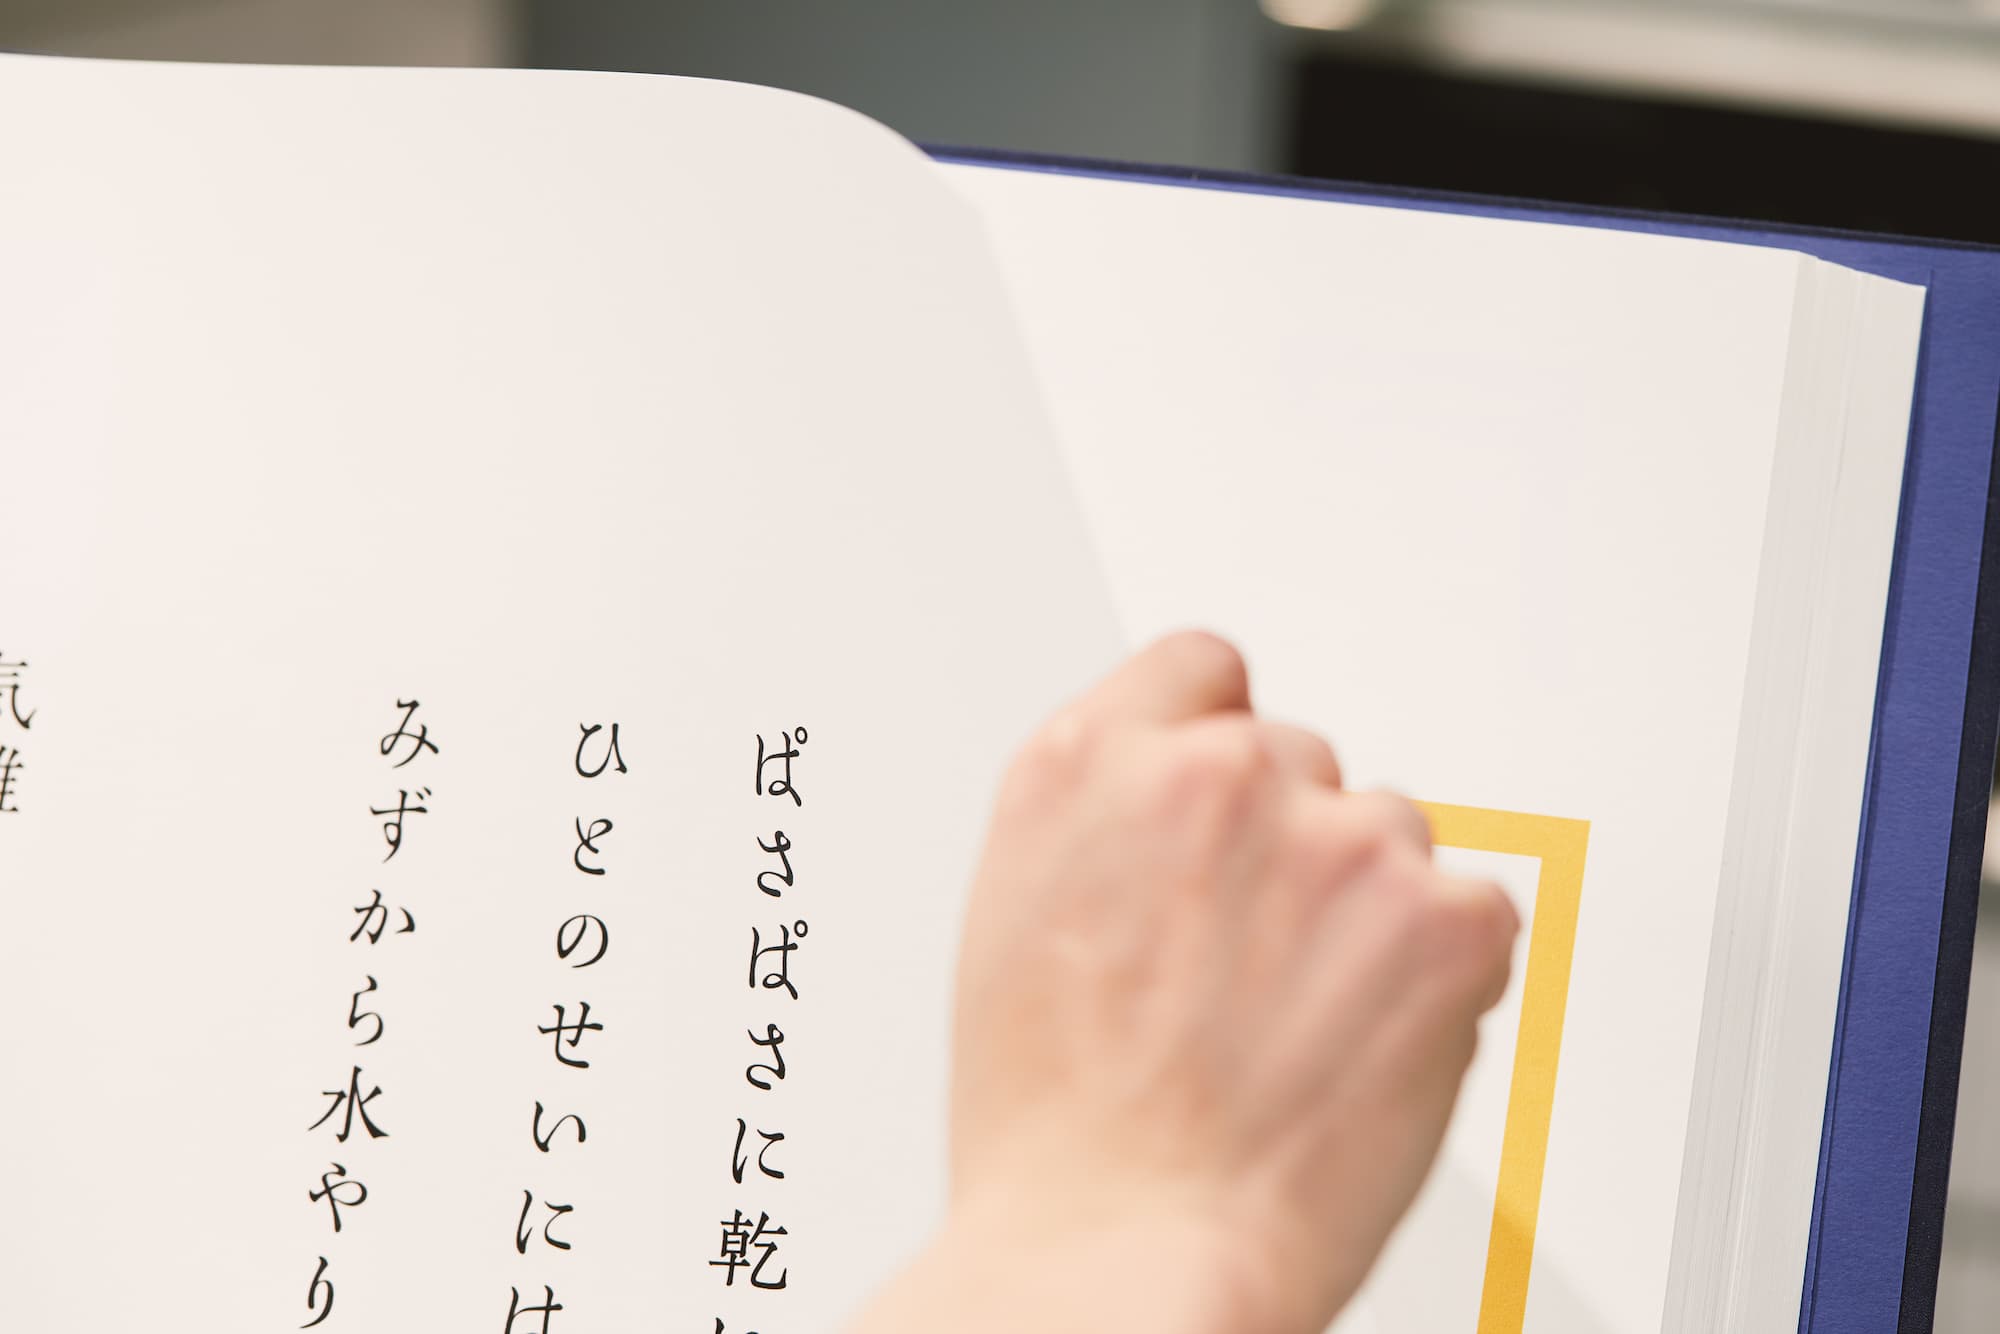 ぱさぱさに乾
ひとのせいには
みずから水やり
気難